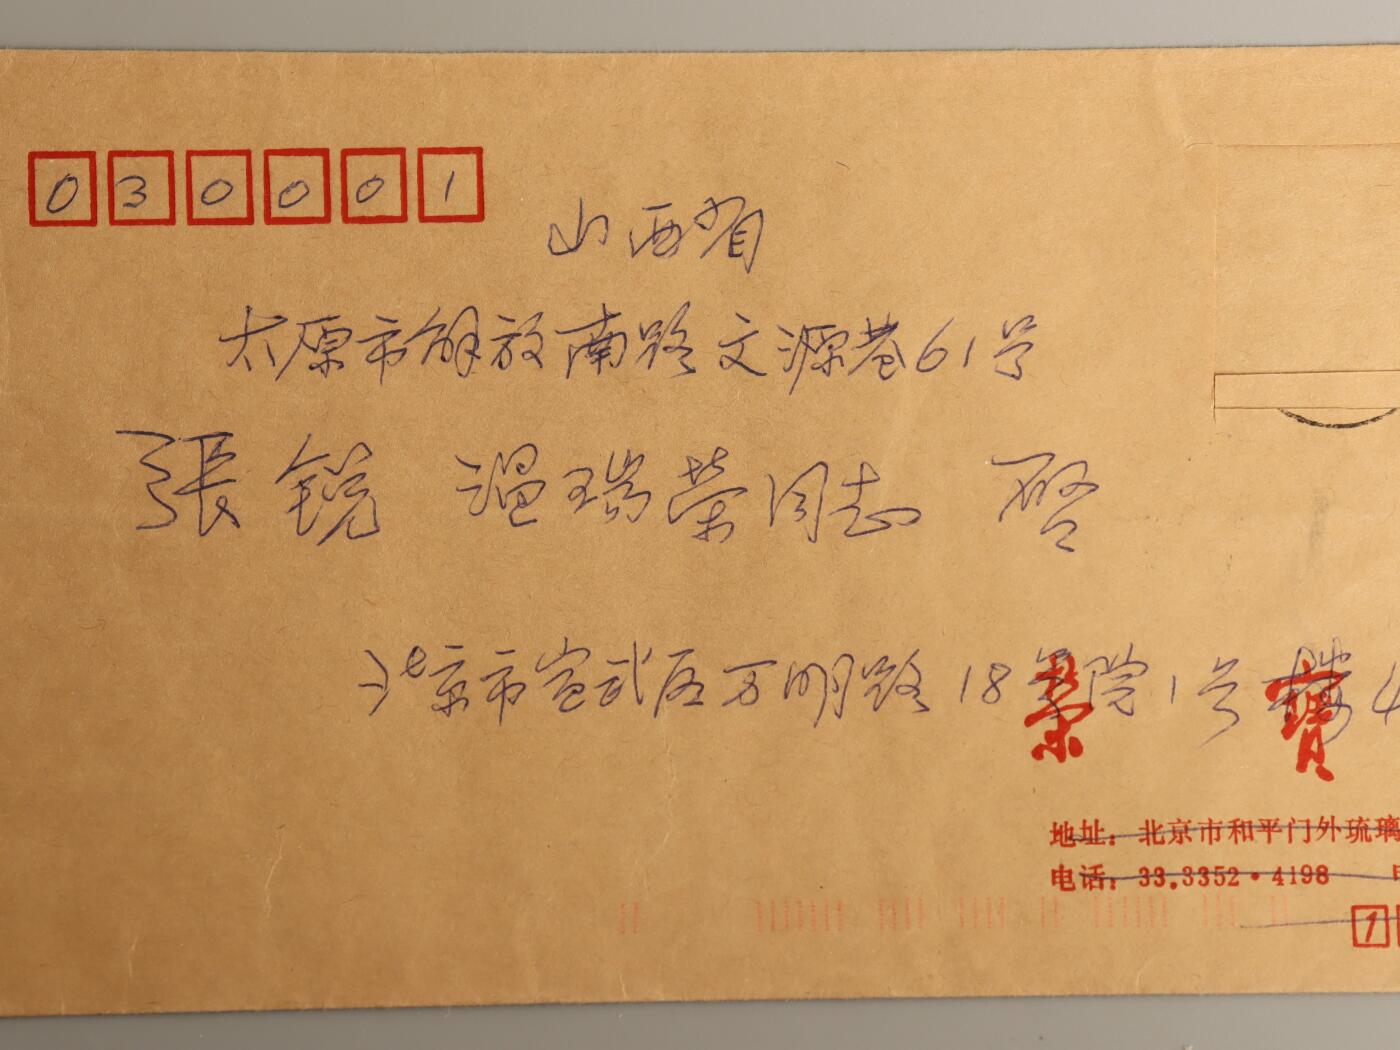 030001
山西省
太原市解放南路文源巷61号
張锐 温瑞荣同志 启
北京市宣武区万明路18号院1号楼4
榮寶
地址：北京市和平门外琉璃
电话：33.3352·4198
1